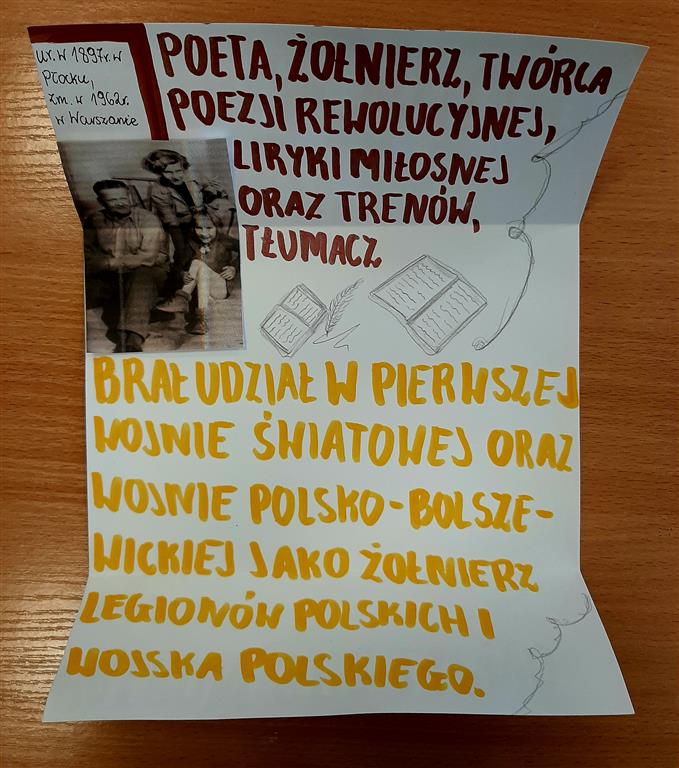 ur. w 1897r. w
Płocku,
zm. w 1962r.
w Warszawie
POETA, ŻOŁNIERZ, TWÓRCA
POEZJI REWOLUCYJNEJ,
LIRYKI MIŁOSNEJ
ORAZ TRENÓW,
TŁUMACZ
BRAŁ UDZIAŁ W PIERWSZEJ
WOJNIE ŚWIATOWEJ ORAZ
WOJNIE POLSKO-BOLSZE-
WICKIEJ JAKO ŻOŁNIERZ
LEGIONÓW POLSKICH I
WOJSKA POLSKIEGO.